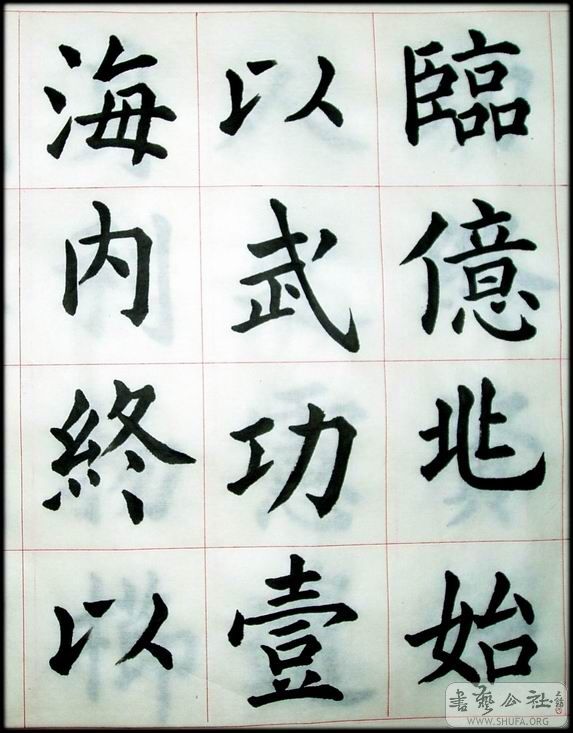 臨億兆始
以武功壹
海內終以
書藝公社
WWW.SHUFA.ORG